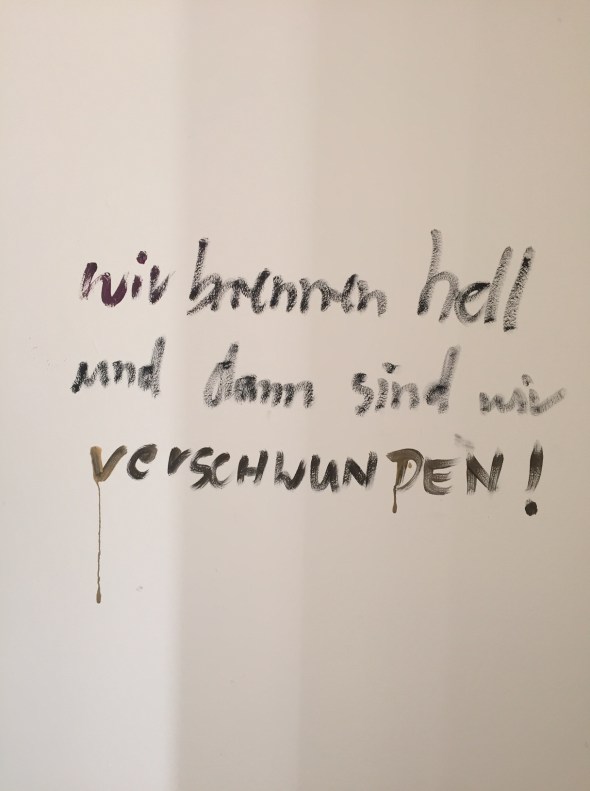 wir brennen hell
und dann sind wir
verSCHWUNDEN!